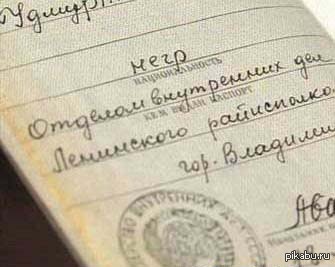 Удмурт
негр
НАЦИОНАЛЬНОСТЬ
Отделом внутренних дел
КЕМ ВЫДАН ПАСПОРТ
Ленинского райисполко
гор. Владими
ВНУТРЕННИХ ДЕЛ
pikabu.ru